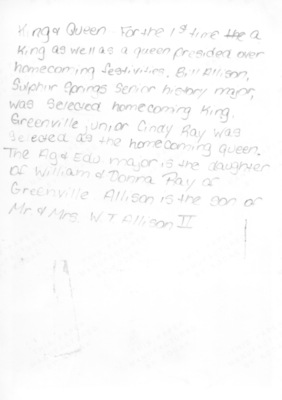 King & Queen - For the 1st time the a
King as well as a queen presided over
homecoming festivities. Bill Allison,
Sulphur Springs Senior history major,
was selected homecoming King.
Greenville junior Cindy Ray was
selected as the homecoming queen.
The Ag & Edu major is the daughter
of William & Donna Ray of
Greenville. Allison is the son of
Mr. & Mrs. W T Allison II